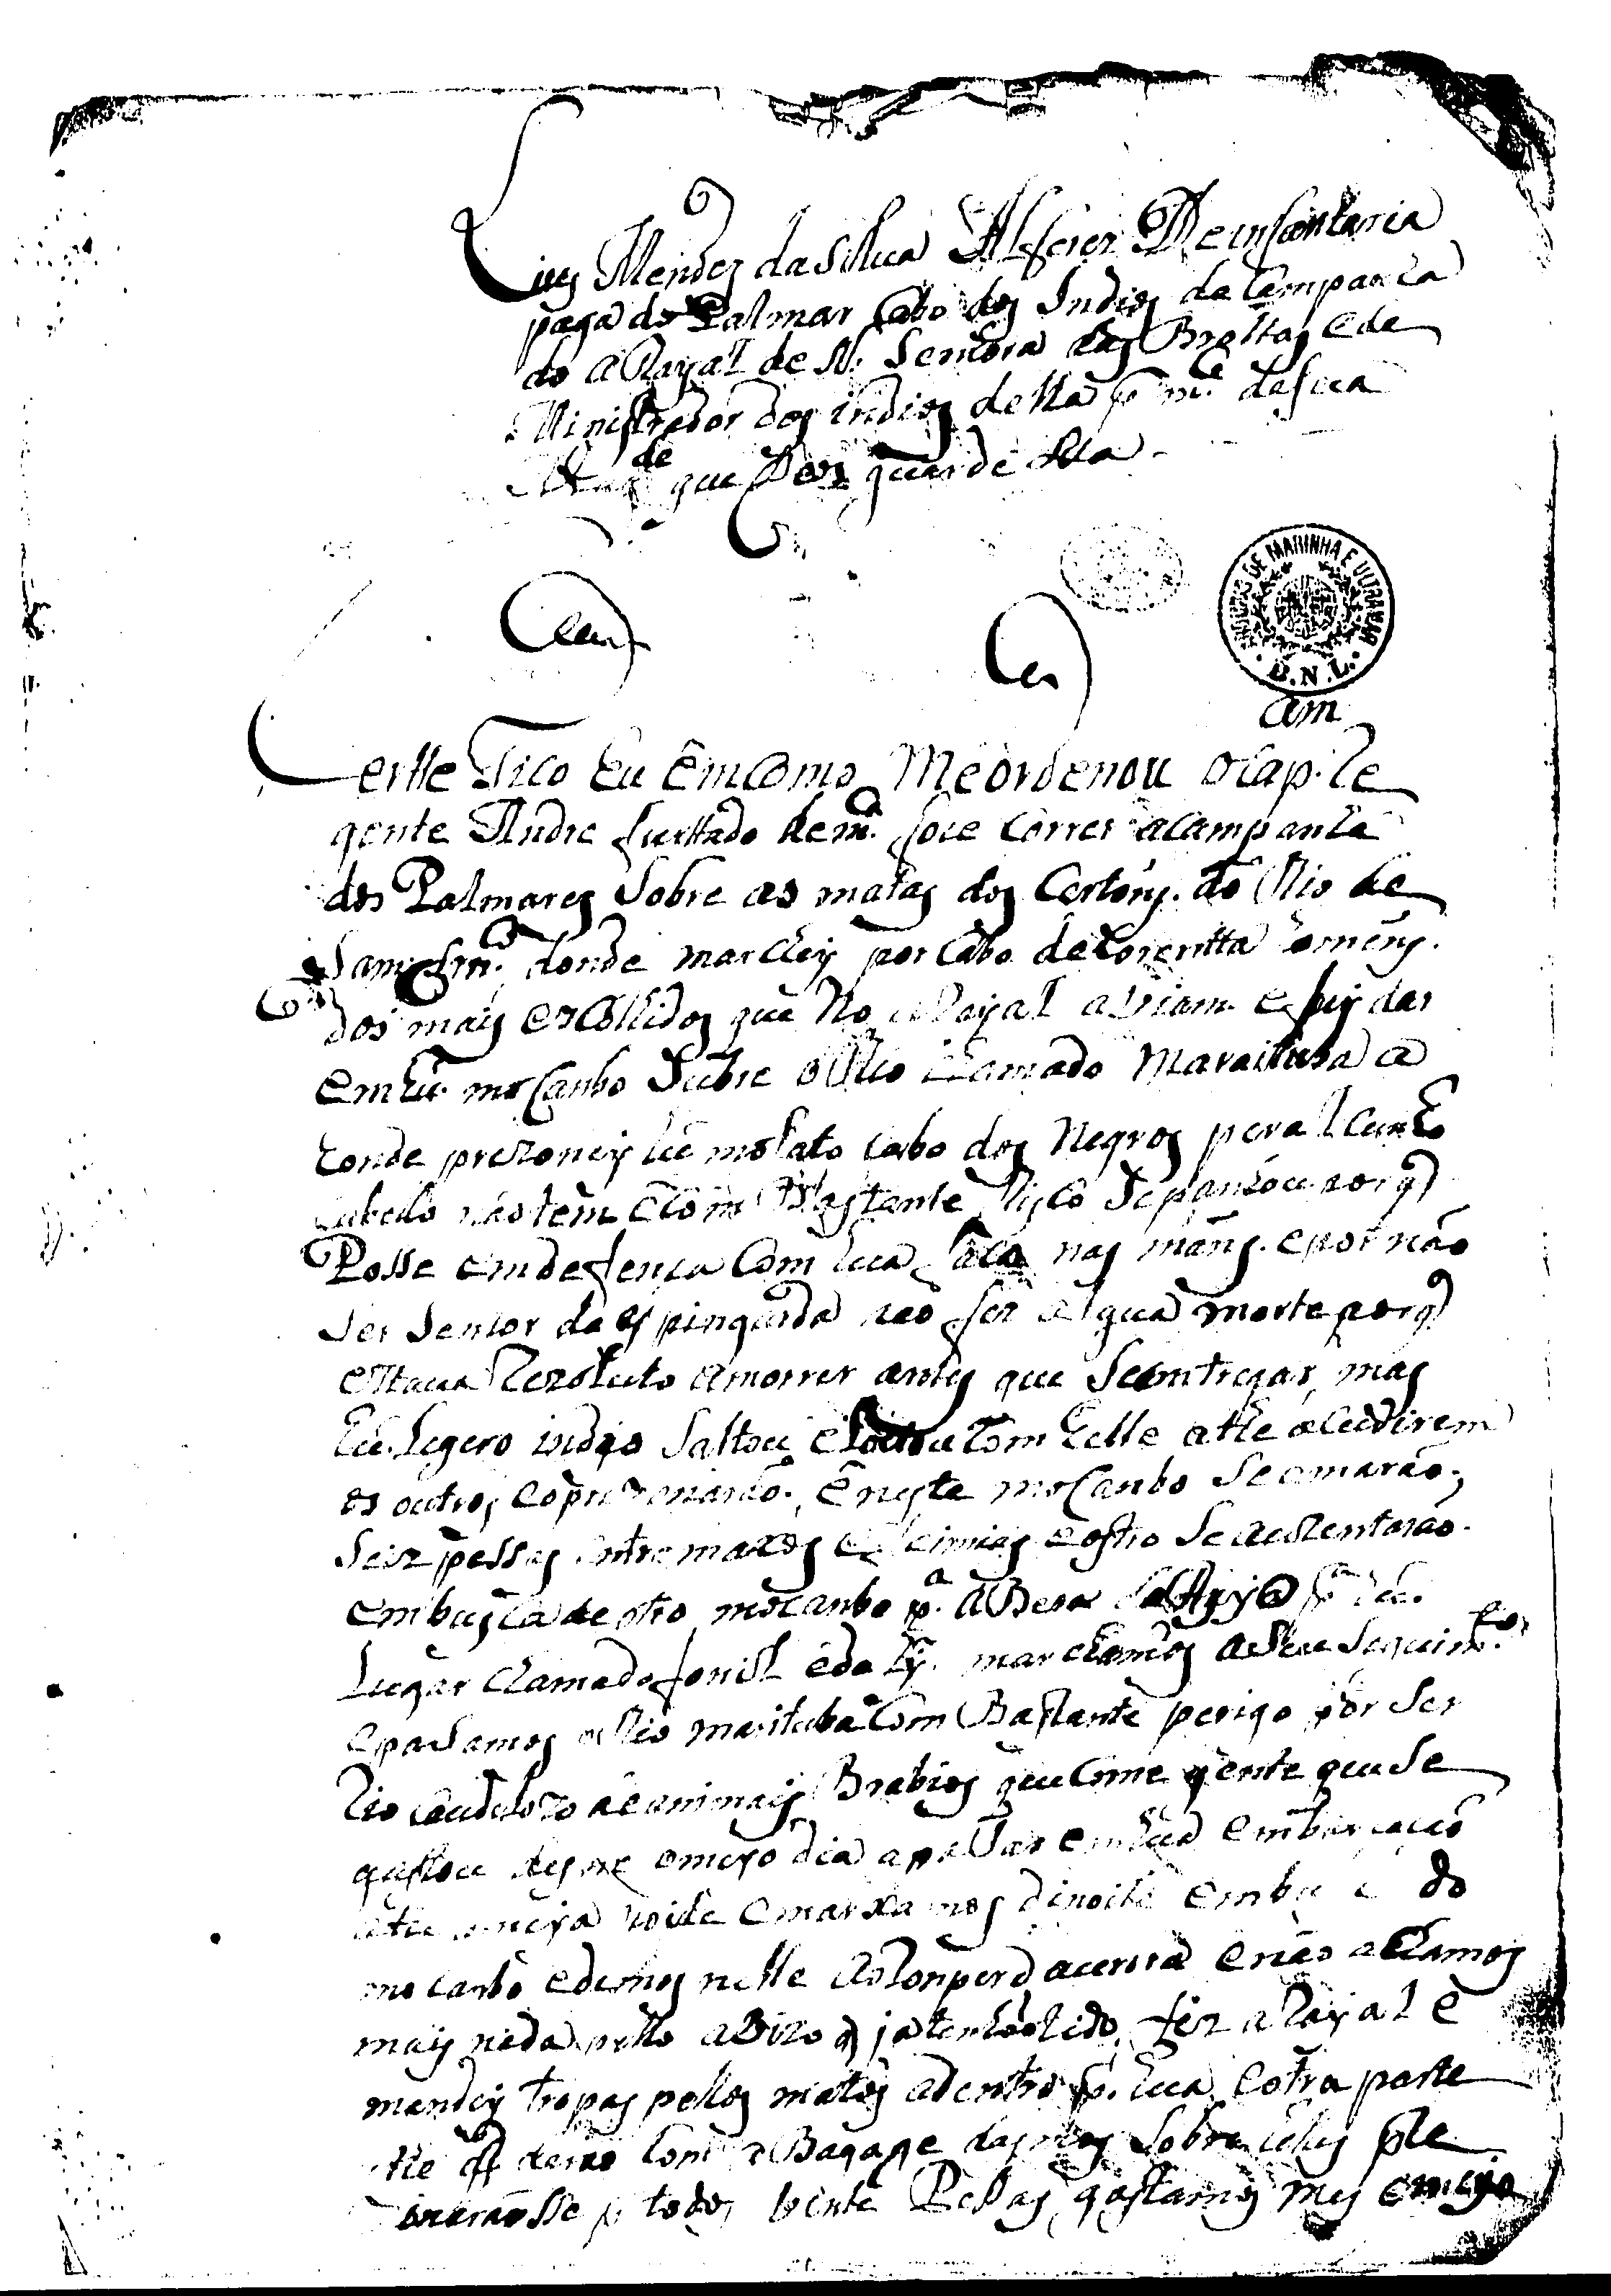 Luis Mendez da Silua Alferez De infantaria
paga do Palmar Cabo dos Indios da Campanha
do aRayal de N. Senhora das Brottas e de
Ministrador dos indios della p m.ce de sua
Mag.de que Deos guarde etta
ARQUIVOS DE MARINHA E ULTRAMAR
B.N.L.
Certte fico Eu Em Como Me ordenou o Cap. Re
gente Andre furttado de m.ca foce Correr a Campanha
dos Palmares Sobre as matas dos Certóis do Rio de
Sam fr.co donde marchei por Cabo de Corentta omeins
dos mais escolhidos que No aRayal aviam e fuy dar
em hũ mocanbo Subre o Rio chamado Maraituba a
honde prezoney hũ molato cabo dos Negros per alcunha
cabello não tem e Com Bastante Risco porq
Posse em defença Com hua faca nas maõs e por não
ser senhor da espingarda não fez algua morte porq
estaua Rezoluto a morrer antes que Se emtregar mas
hũ Ligero indio Saltou e lutou Com Elle athe acudirem
os outros e o prezonarão e neste mocanbo Se tomarão
Seis pessas entre maxos e femias e ostro Se auzentarão
em busca de otro mocanbo p.a a Beira
Lugar chamado fonil e da hy marchamos a Seu Seguim.to
e pasamos o Rio marituba Com Bastante perigo por Ser
Rio caudalozo de animais Brabios que Come gente que Se
gastou des de o meyo dia a passar em hua embarcação
athe a meya noite e marxamos de noite em do
mocanbo e demos nelle ao Ronper da aurora e não achamos
mais nada pello abizo q ja tenhão tido fiz aRayal e
mandey tropas pellos matos adentro p. hua e otra parte
the q derão Com a Bagage das negras Sobre
todos binte Pessas gastamos mes e meyo